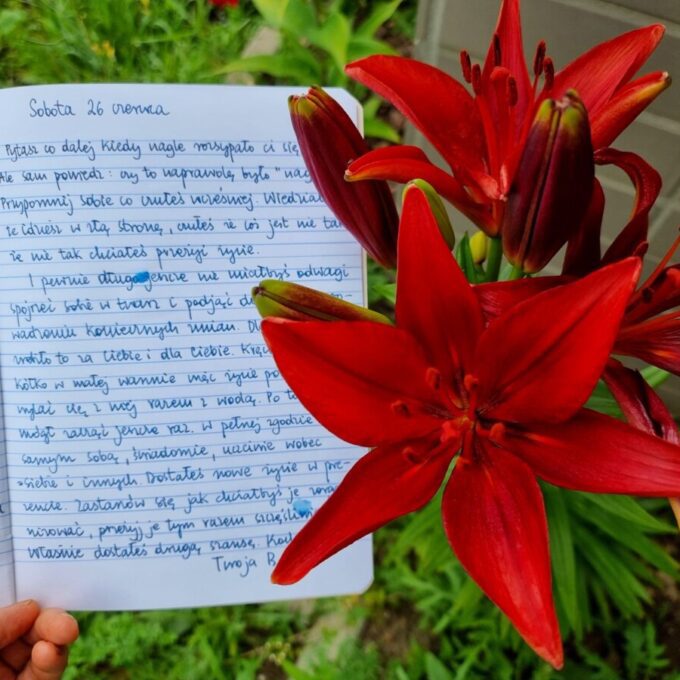 Sobota 26 czerwca
Pytasz co dalej kiedy nagle rozsypało ci się
Ale sam powiedz: czy to naprawdę było "nag
Przypomnij sobie co czułeś wcześniej. Wiedział
że idziesz w złą stronę, czułeś że coś jest nie ta
że nie tak chciałeś przeżyć życie.
I pewnie długo jeszcze nie miałbyś odwagi
spojrzeć sobie w twarz i podjąć de
wadzeniu koniecznych zmian.
to za Ciebie i dla Ciebie.
kółko w małej wannie więc życie po
się z niej razem z wodą. Po to
mógł zacząć jeszcze raz. W pełnej zgodzie
samym sobą, świadomie, uczciwie wobec
siebie i innych. Dostałeś nowe życie w pre-
zencie. Zastanów się jak chciałbyś je
, przeżyj je tym razem szczęśliw
Właśnie dostałeś drugą szansę.
Twoja B